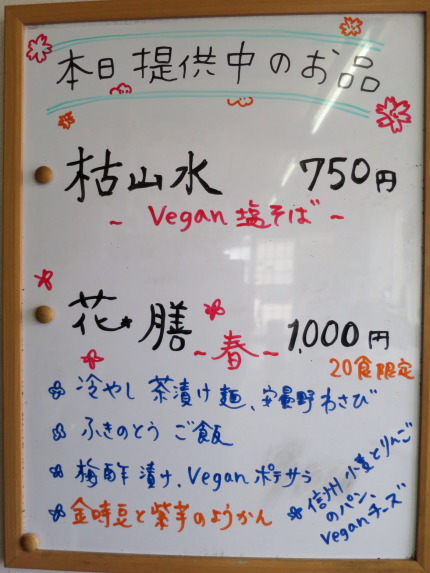 本日提供中のお品
枯山水 750円
～ Vegan 塩そば ～
花★膳 ～春～ 1,000円
20食限定
冷やし茶漬け麺、安曇野わさび
ふきのとうご飯
梅酢漬け、Vegan ポテサラ
金時豆と紫芋のようかん
信州小麦とりんご
のパン、
Veganチーズ